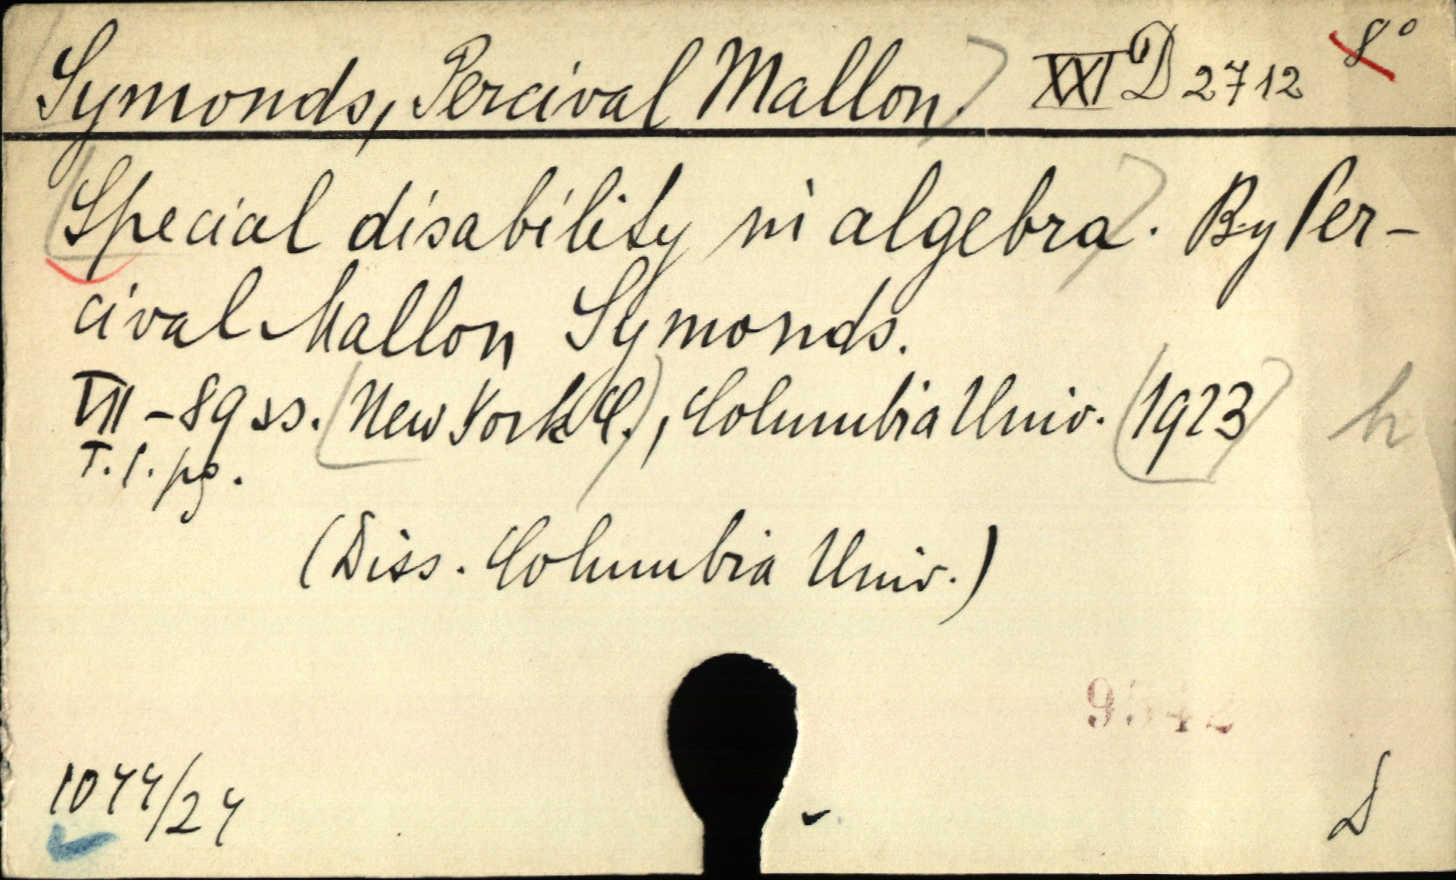 Symonds, Percival Mallon XXI D 2712 8°
Special disability in algebra. By Per-
cival Mallon Symonds.
VII - 89 ss. New York C., Columbia Univ. 1923 h
T. l. pg.
(Diss. Columbia Univ.)
9542
1044/24
D